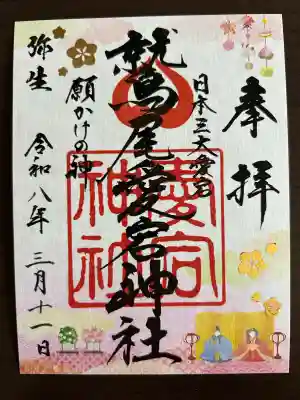 奉拝
日本三大愛宕
鷲尾愛宕神社
願かけの神
弥生　令和八年　三月十一日
愛宕
神社